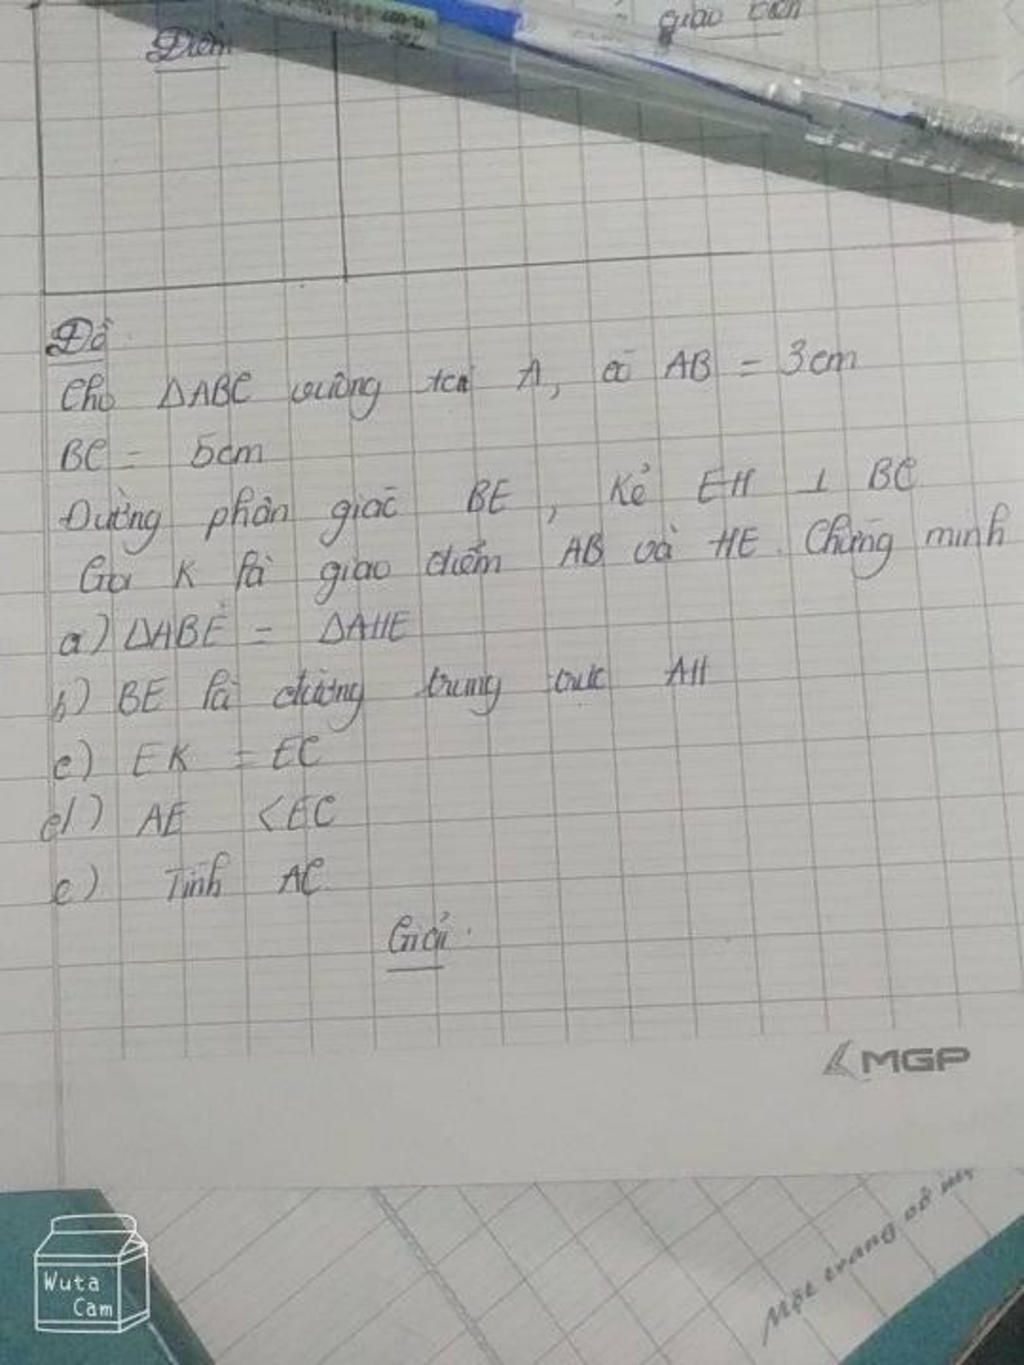 Điểm
giáo viên
Đề
Cho ΔABC vuông tại A, có AB = 3cm
BC = 5cm
Đường phân giác BE, Kẻ EH ⊥ BC
Gọi K là giao điểm AB và HE. Chứng minh
a) ΔABE = ΔAHE
b) BE là đường trung trực AH
c) EK = EC
d) AE < EC
e) Tính AC
Giải
MGP
Một trang vở
Wuta
Cam